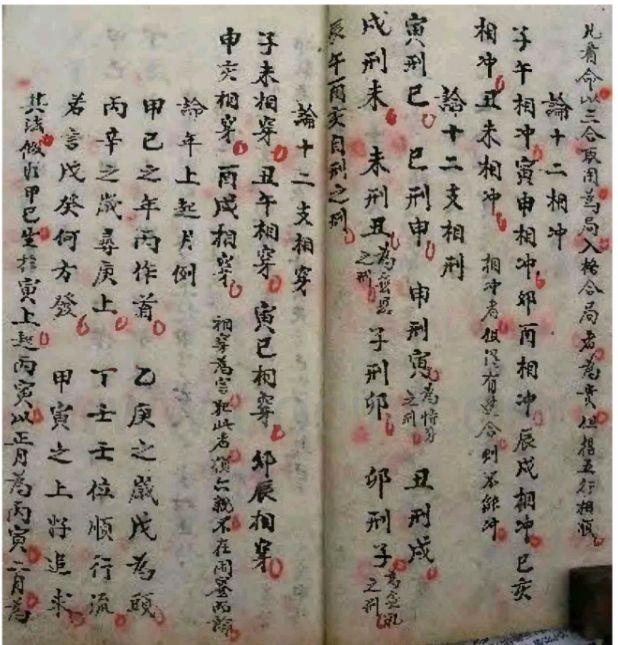 凡看命以三合取用為局入格合局者為貴但揩五行相順
論十二相冲
子午相冲寅申相冲卯酉相冲辰戌相冲巳亥
相冲丑未相冲 相冲者但没有合則不能冲
論十二支相刑
寅刑巳 巳刑申 申刑寅為恃势之刑 丑刑戌
戌刑未 未刑丑為之刑 子刑卯 卯刑子為無礼之刑
辰午酉亥自刑之刑
論十二支相穿
子未相穿丑午相穿寅巳相穿卯辰相穿
申亥相穿酉戌相穿 相穿為害犯此者六親不在
論年上起月例
甲己之年丙作首 乙庚之歲戊為頭
丙辛之歲尋庚上 丁壬壬位順行流
若言戊癸何方發 甲寅之上好追求
其法假如甲己生於寅上起丙寅以正月為丙寅二月為